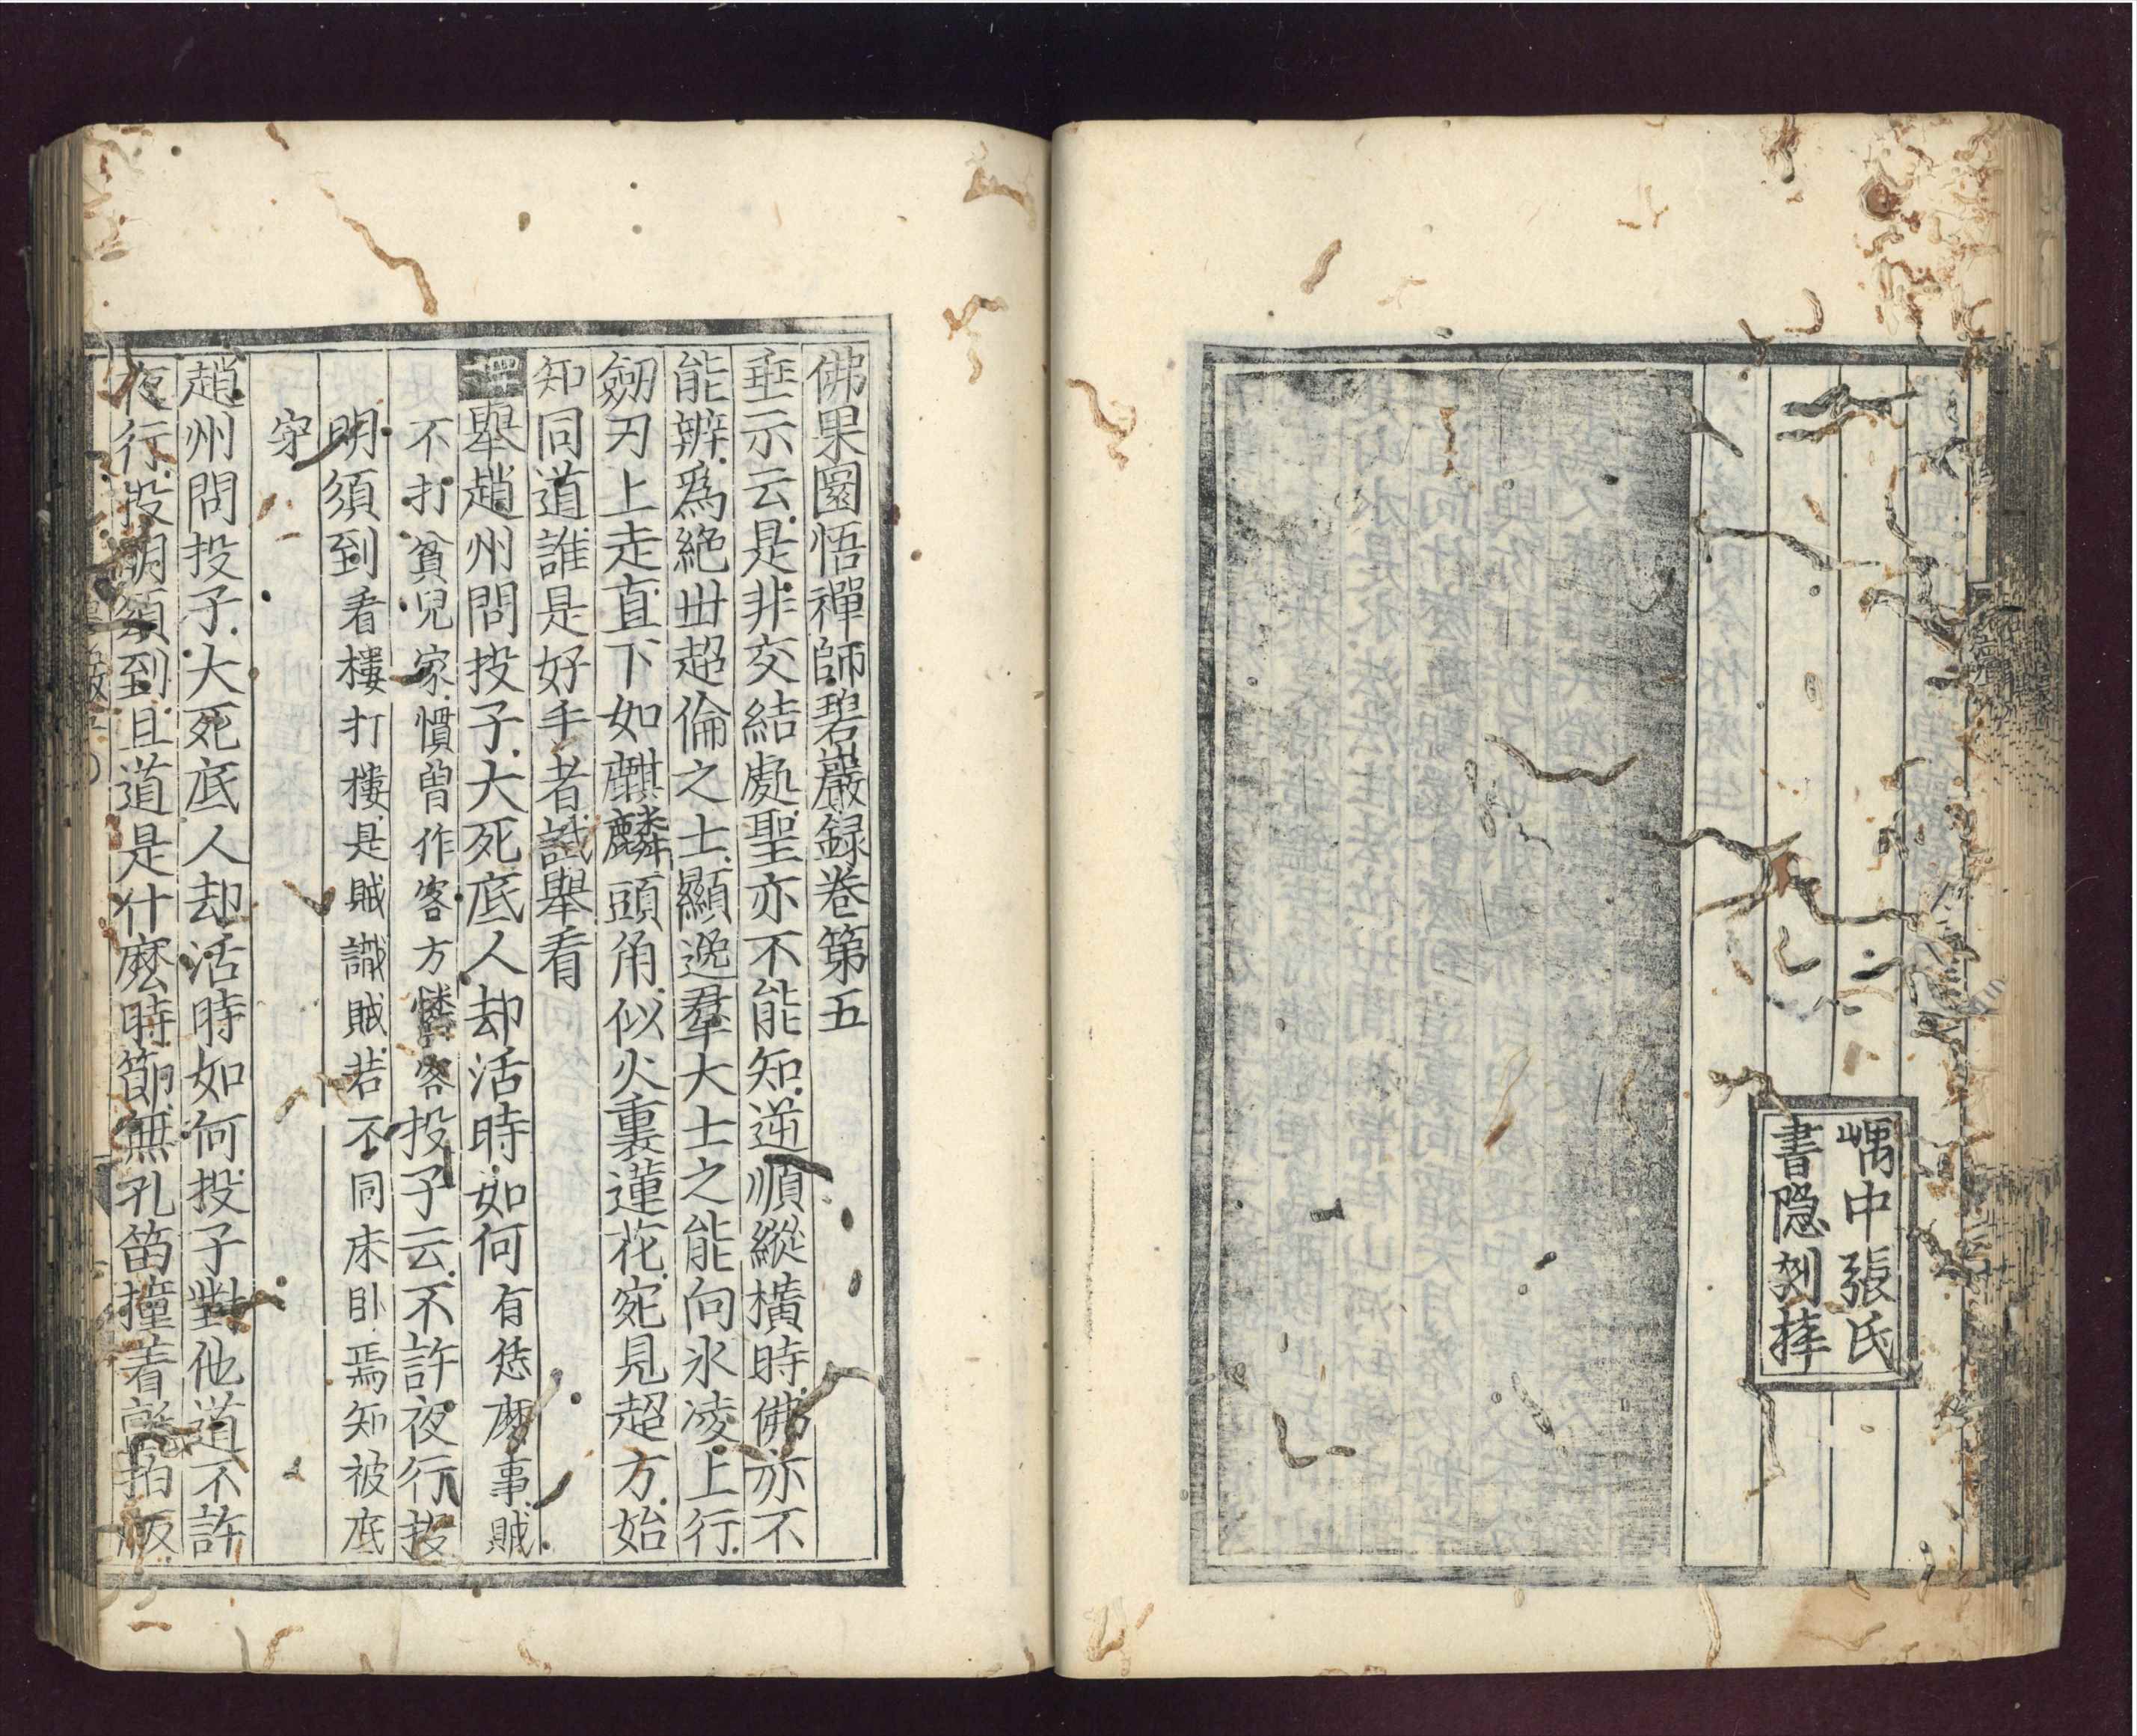 嵎中張氏
書隐刻梓
佛果圜悟禪師碧巖録卷第五
垂示云是非交結處聖亦不能知逆順縱橫時佛亦不
能辨爲絶世超倫之士顯逸羣大士之能向氷凌上行
劒刃上走直下如麒麟頭角似火裏蓮花宛見超方始
知同道誰是好手者試舉看
舉趙州問投子大死底人却活時如何有恁麽事賊
不打貧兒家慣曽作客方憐客投子云不許夜行投
明須到看樓打樓是賊識賊若不同床卧焉知被底
穿
趙州問投子大死底人却活時如何投子對他道不許
夜行投明須到且道是什麽時節無孔笛撞着氈拍版